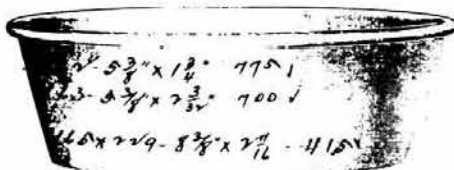 5 3/8" x 1 3/4" 775 ✓
3 - 5 3/8" x 2 3/32" 700 ✓
x 229 - 8 3/8" x 2 11/16 - 415